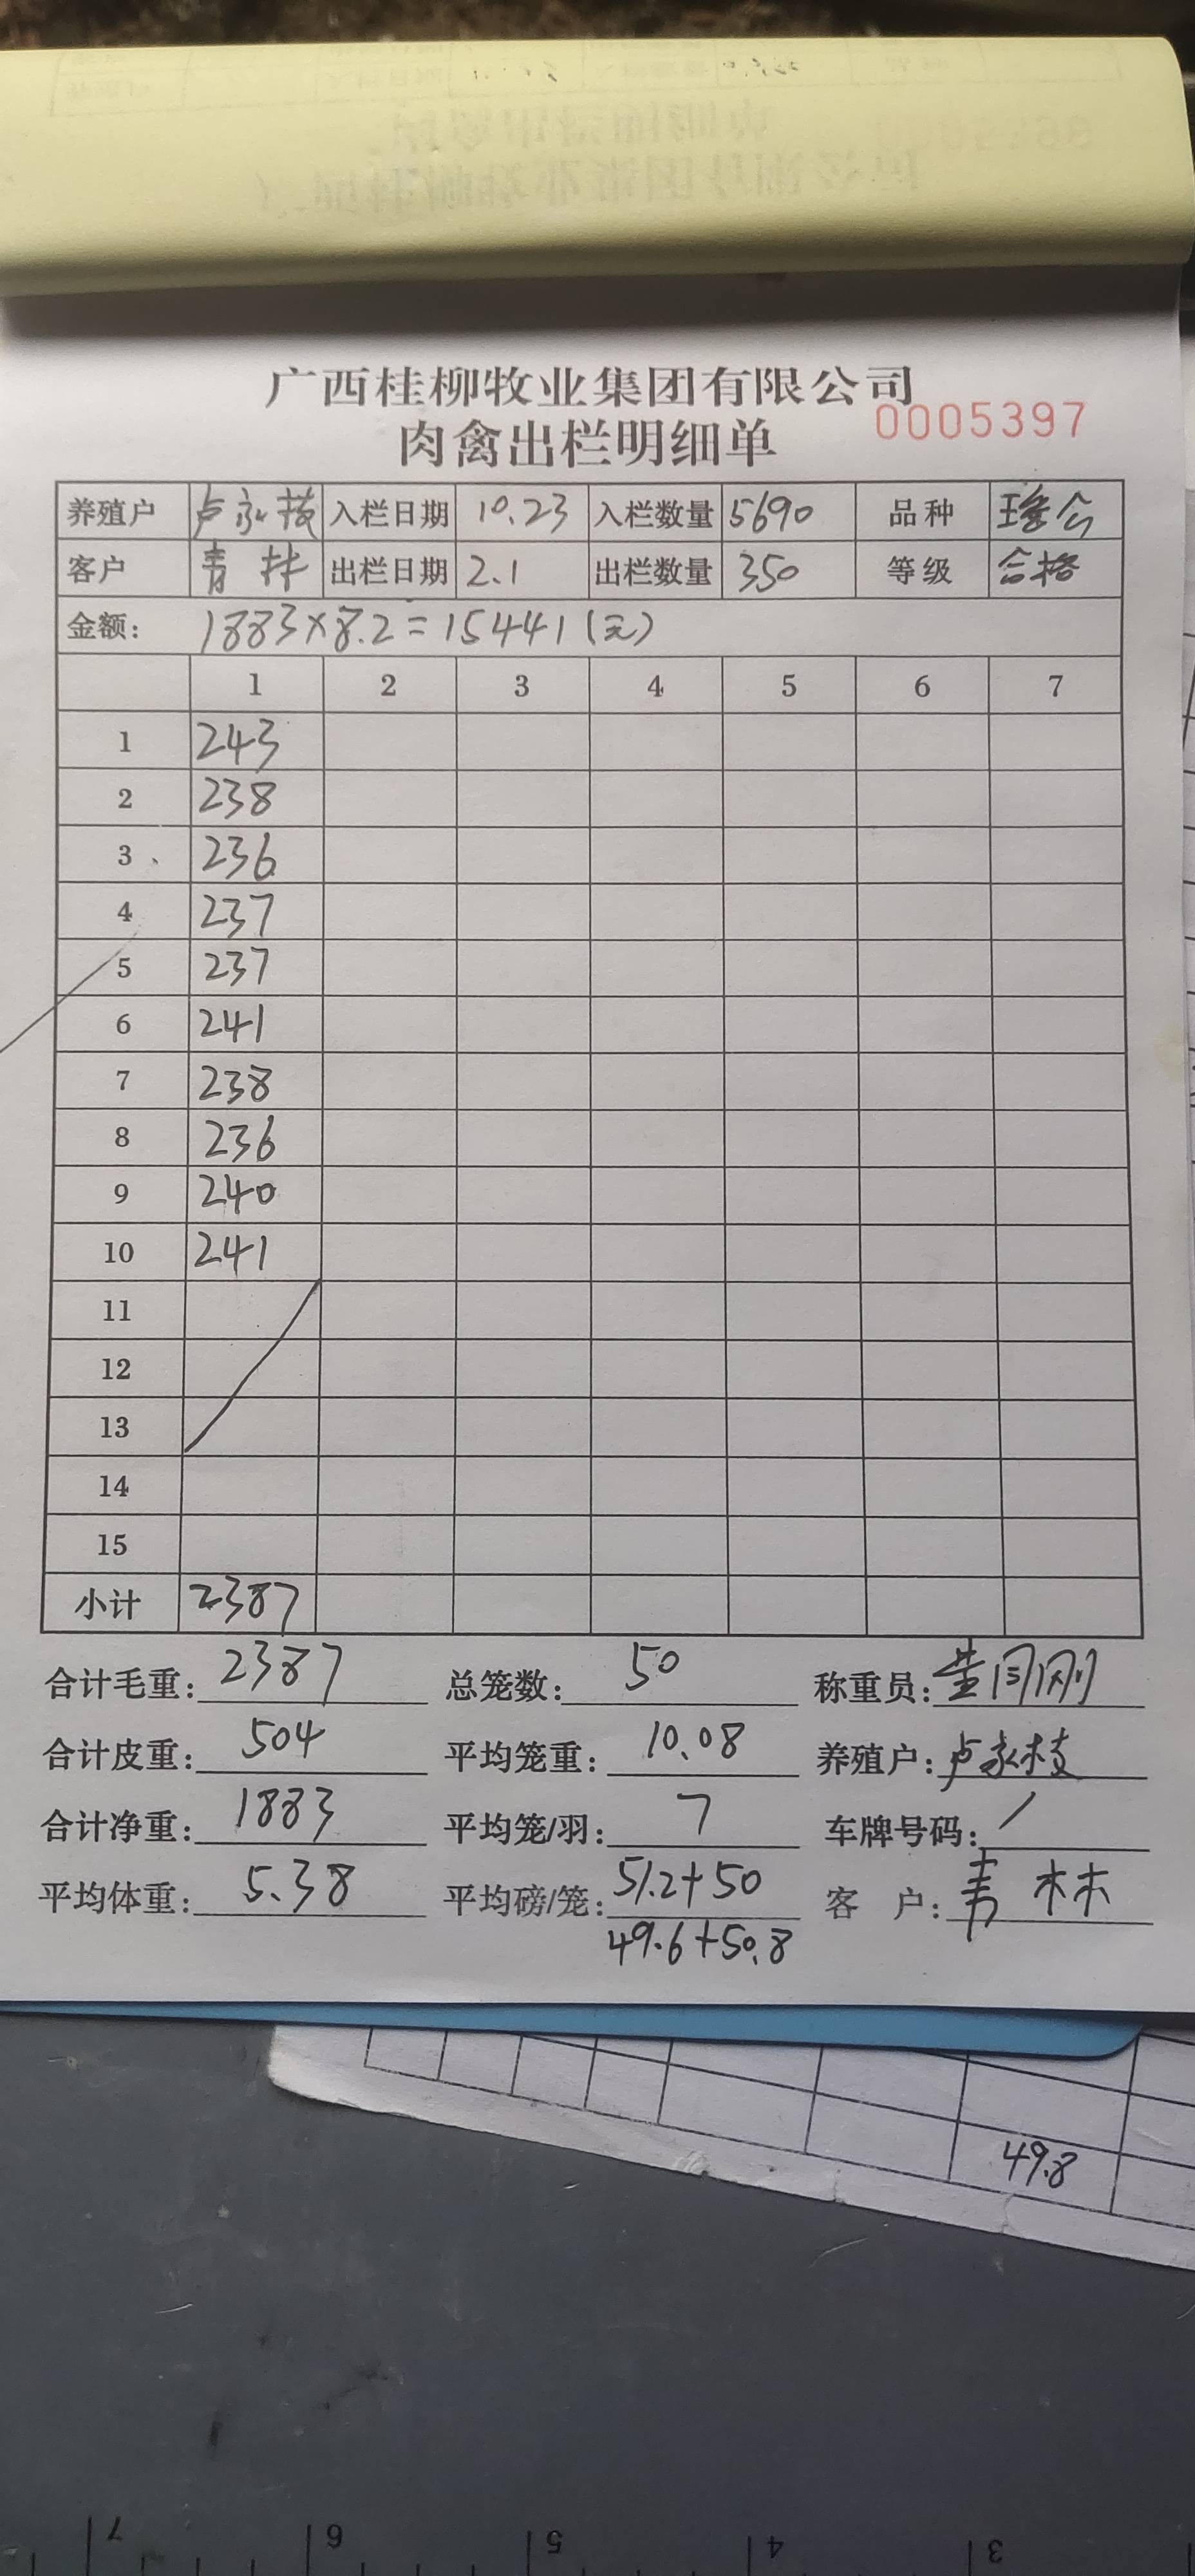 广西桂柳牧业集团有限公司
肉禽出栏明细单 0005397
养殖户 卢永枝 入栏日期 10.23 入栏数量 5690 品种 瑶公
客户 青林 出栏日期 2.1 出栏数量 350 等级 合格
金额: 1883×8.2=15441(元)
1 2 3 4 5 6 7
1 243
2 238
3 236
4 237
5 237
6 241
7 238
8 236
9 240
10 241
11
12
13
14
15
小计 2387
合计毛重: 2387 总笼数: 50 称重员:
合计皮重: 504 平均笼重: 10.08 养殖户: 卢永枝
合计净重: 1883 平均笼/羽: 7 车牌号码: /
平均体重: 5.38 平均磅/笼: 51.2+50 客 户: 青林
49.6+50.8
49.8
7 6 5 4 3